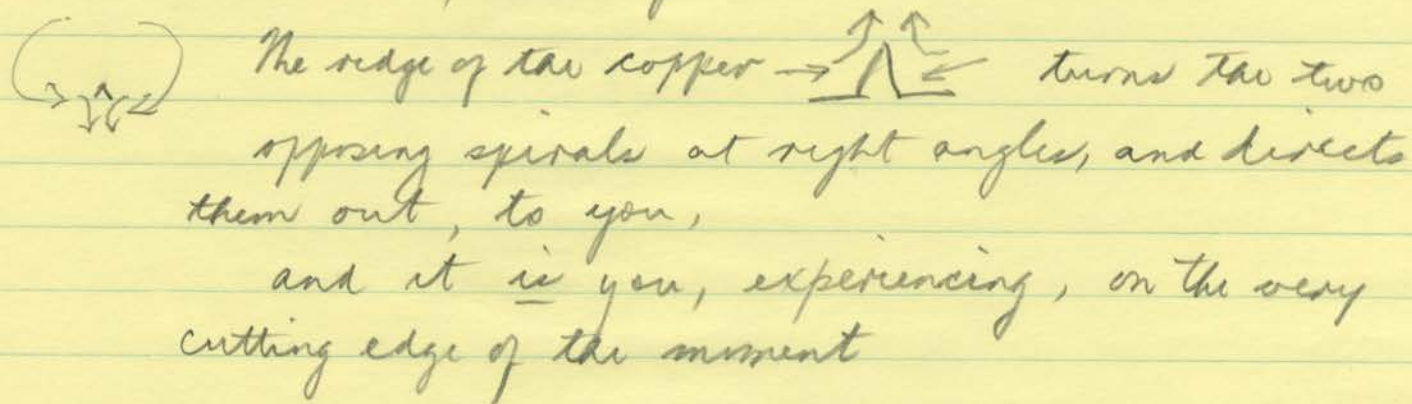 The ridge of the copper turns the two
opposing spirals at right angles, and directs
them out, to you,
and it is you, experiencing, on the very
cutting edge of the moment